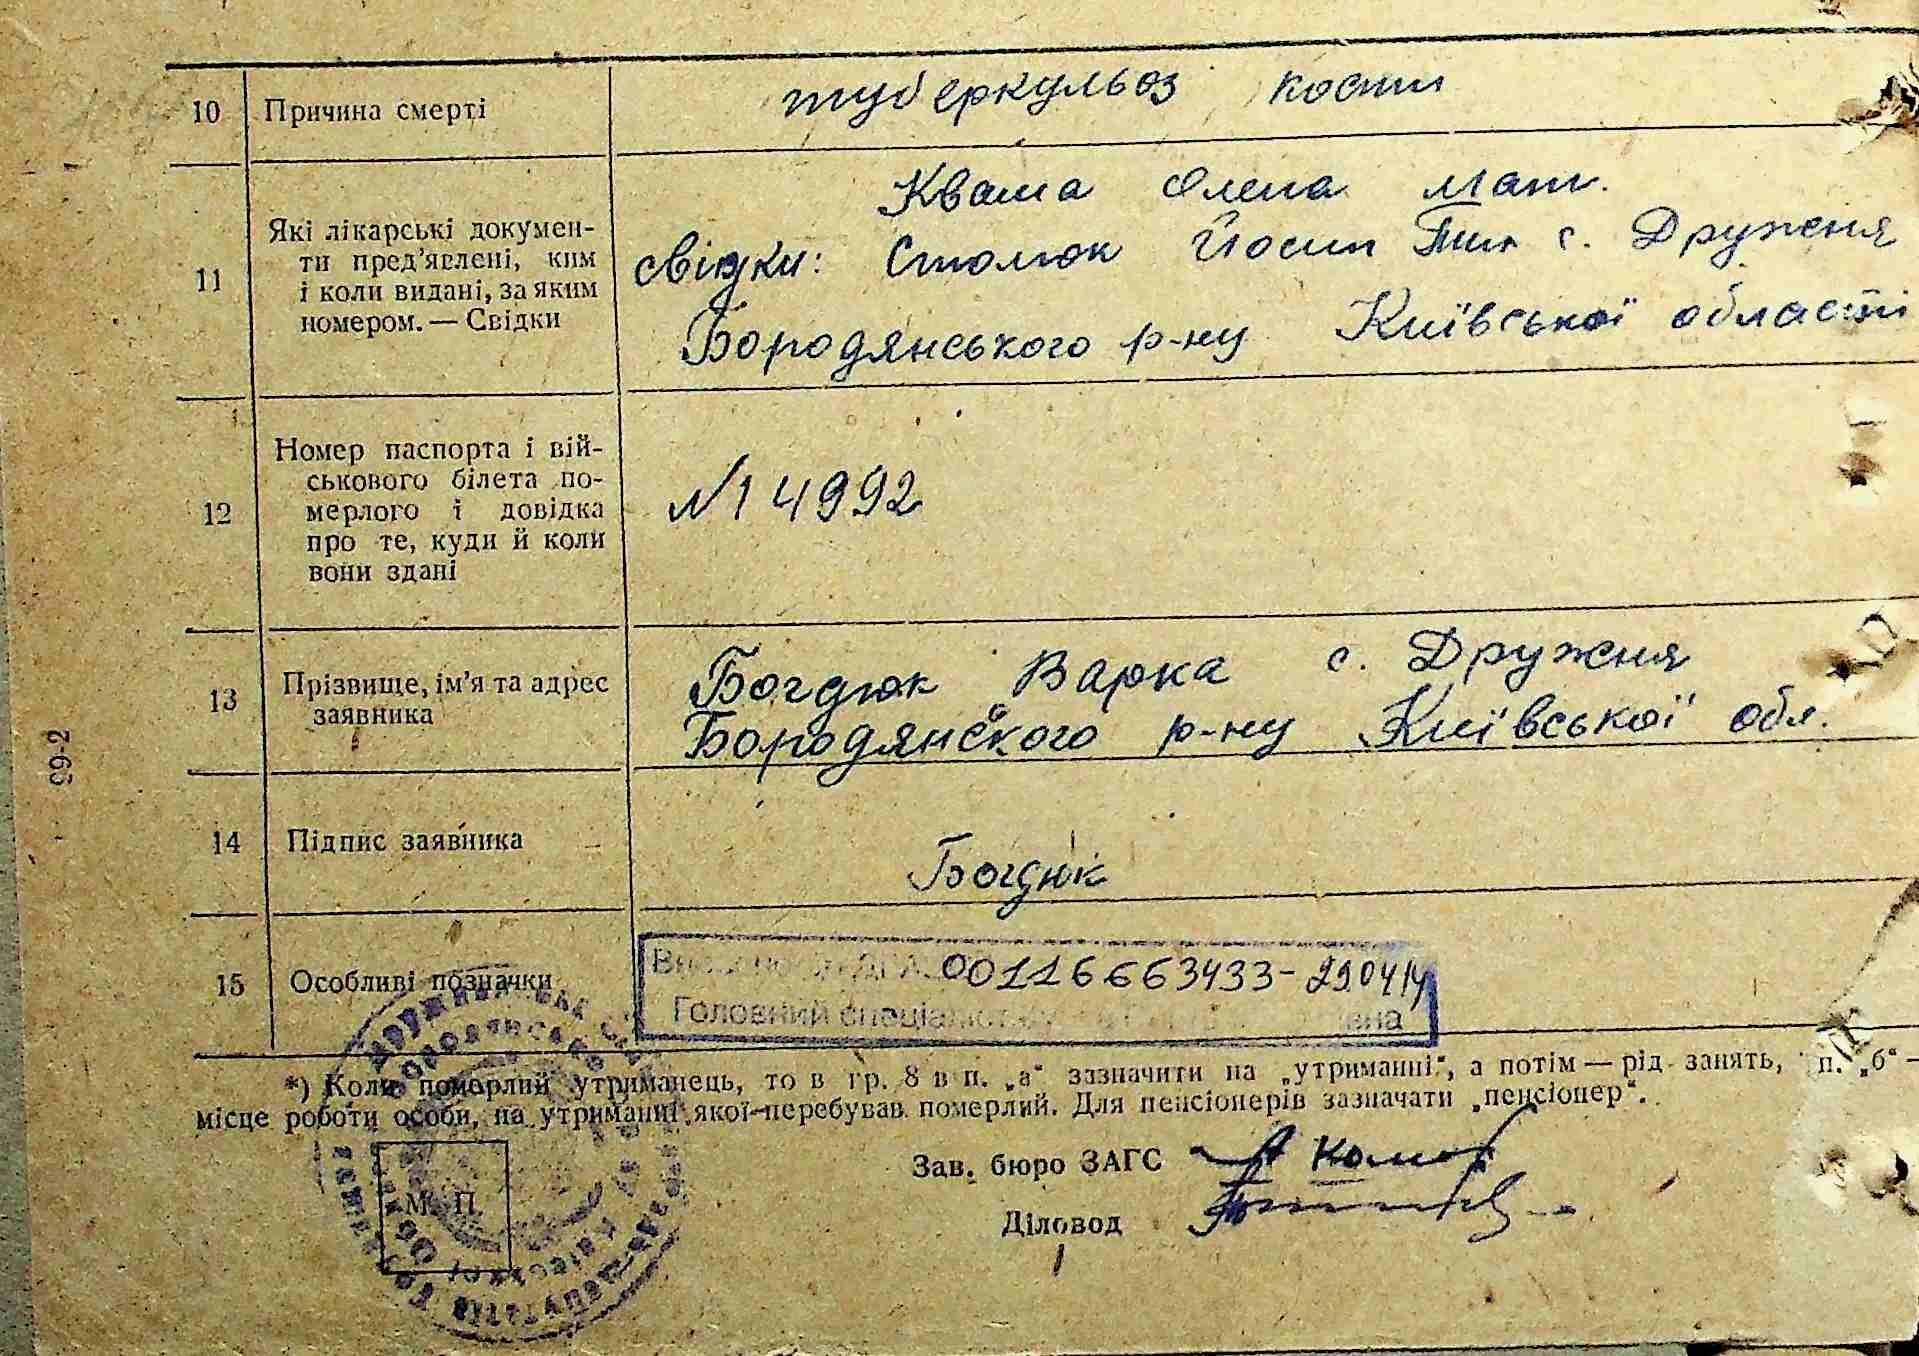 10 Причина смерті туберкульоз кости
11 Які лікарські докумен-
ти пред'явлені, ким
і коли видані, за яким
номером. — Свідки
Кваша Олена мат.
свідки: Столюк Йосип Тим с. Дружня
Бородянського р-ну Київської області
12 Номер паспорта і вій-
ськового білета по-
мерлого і довідка
про те, куди й коли
вони здані
№14992
13 Прізвище, ім'я та адрес
заявника
Богдюк Варка с. Дружня
Бородянського р-ну Київської обл.
14 Підпис заявника
Богдюк
15 Особливі позначки
00116663433-290414
Головний
*) Коли померлий утриманець, то в гр. 8 в п. „а“ зазначити на „утриманні“, а потім — рід занять, п. „б“ —
місце роботи особи, на утриманні якої перебував померлий. Для пенсіонерів зазначати „пенсіонер“.
Зав. бюро ЗАГС
Діловод
М. П.
99-2